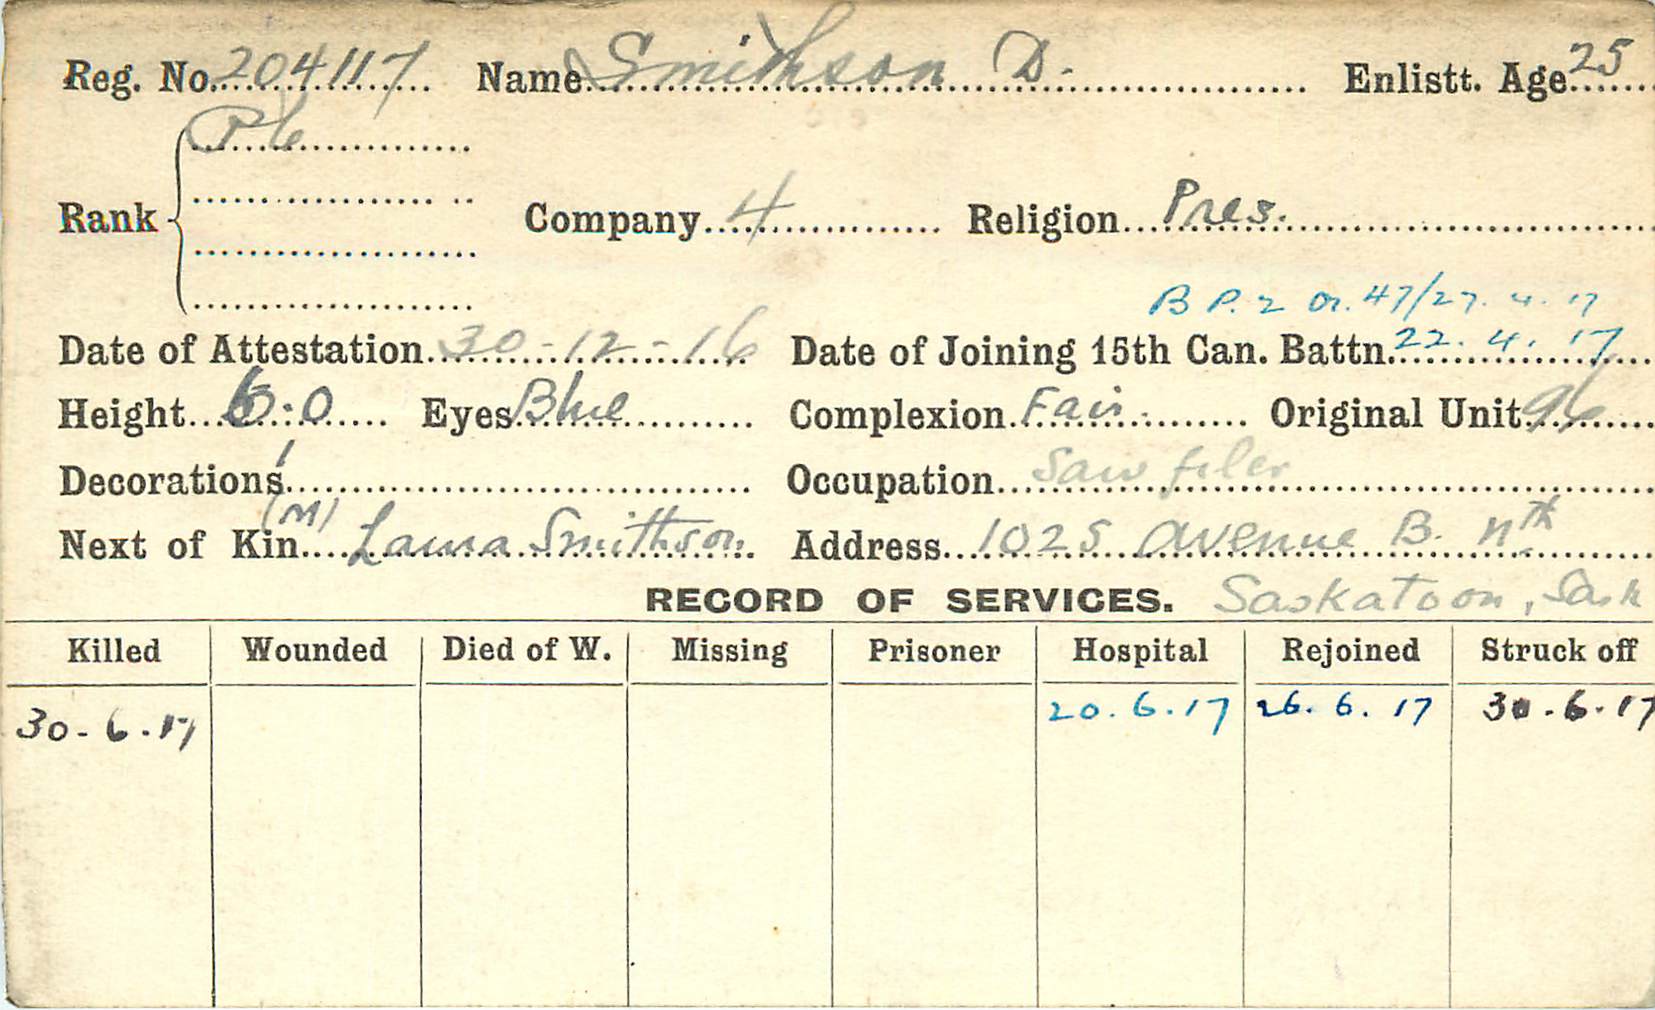 Reg. No. 204117 Name Smithson D. Enlistt. Age 25
Rank Pte
Company 4 Religion Pres.
B P. 2 Or. 47/27. 4. 17
Date of Attestation 30-12-16 Date of Joining 15th Can. Battn. 22. 4. 17
Height 6:0 Eyes Blue Complexion Fair. Original Unit 96
Decorations Occupation Saw filer
(M)
Next of Kin Laura Smithson Address 1025 Avenue B. Nth
RECORD OF SERVICES. Saskatoon, Sask
Killed Wounded Died of W. Missing Prisoner Hospital Rejoined Struck off
30-6-17 20.6.17 26.6.17 30.6.17